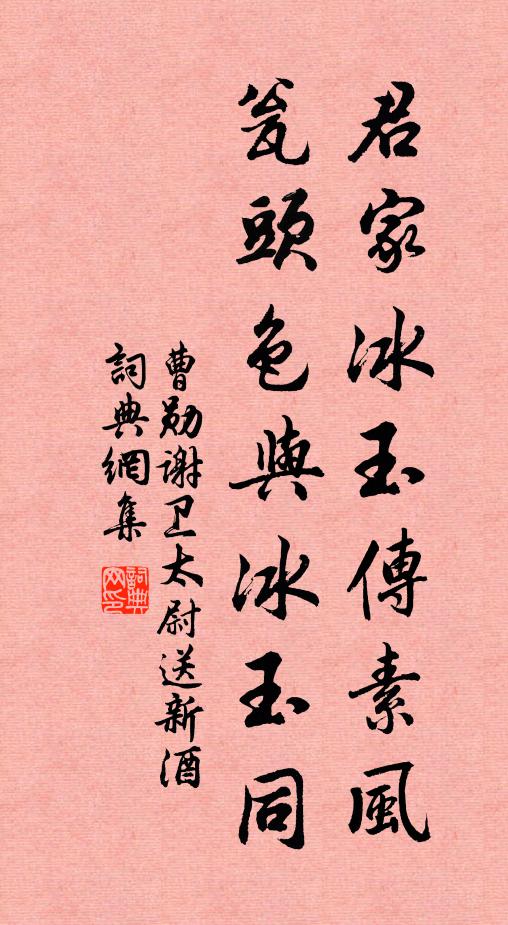 君家冰玉傳素風
瓮頭色與冰玉同
曹勋謝卫太尉送新酒
詞典網集
詞典网印